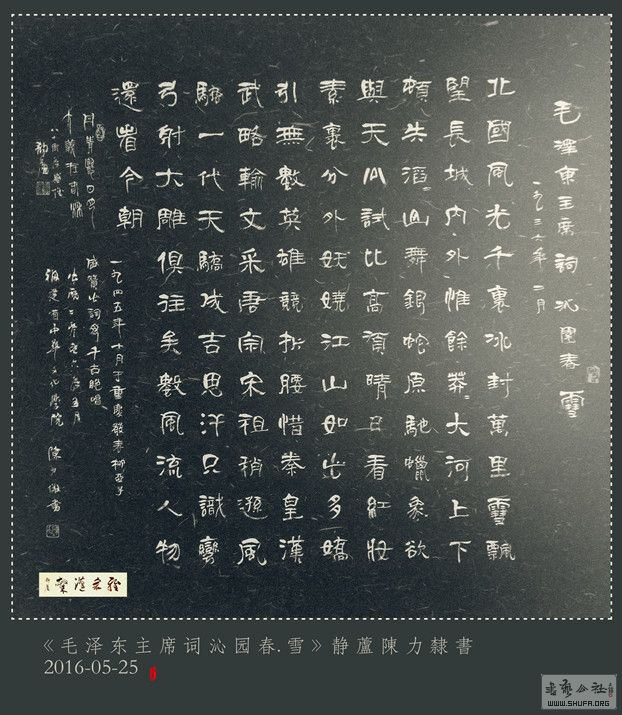 毛澤東主席詞沁園春雪
一九三六年二月
北國風光千裏冰封萬里雪飄
望長城内外惟餘莽〻大河上下
頓失滔〻山舞銀蛇原馳蠟象欲
與天公試比高須晴日看紅妝
素裹分外妖嬈江山如此多嬌
引無數英雄競折腰惜秦皇漢
武略輸文采唐宗宋祖稍遜風
騷一代天驕成吉思汗只識彎
弓射大雕俱往矣數風流人物
還看今朝
一九四五年十月于重慶發表柳亞子
盛贊此詞爲千古絶唱
福建省中華文化學院 陳力
《毛泽东主席词沁园春.雪》静蘆陳力隸書
2016-05-25
書法公社
WWW.SHUFA.ORG